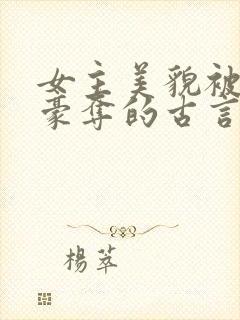 女主美貌被
豪奪的古言
楊萃